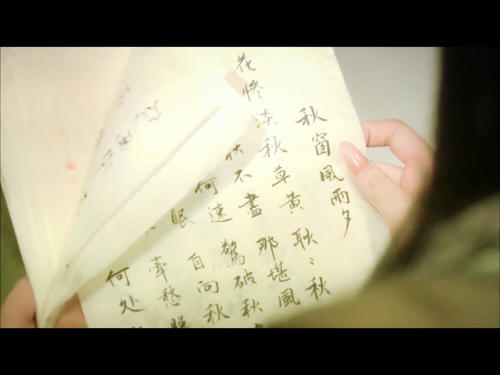 秋窗風雨夕
花惨淡秋草黄 耿〻秋
秋不盡 那堪風
何速 驚破秋
眠 自向秋
牽愁
何处